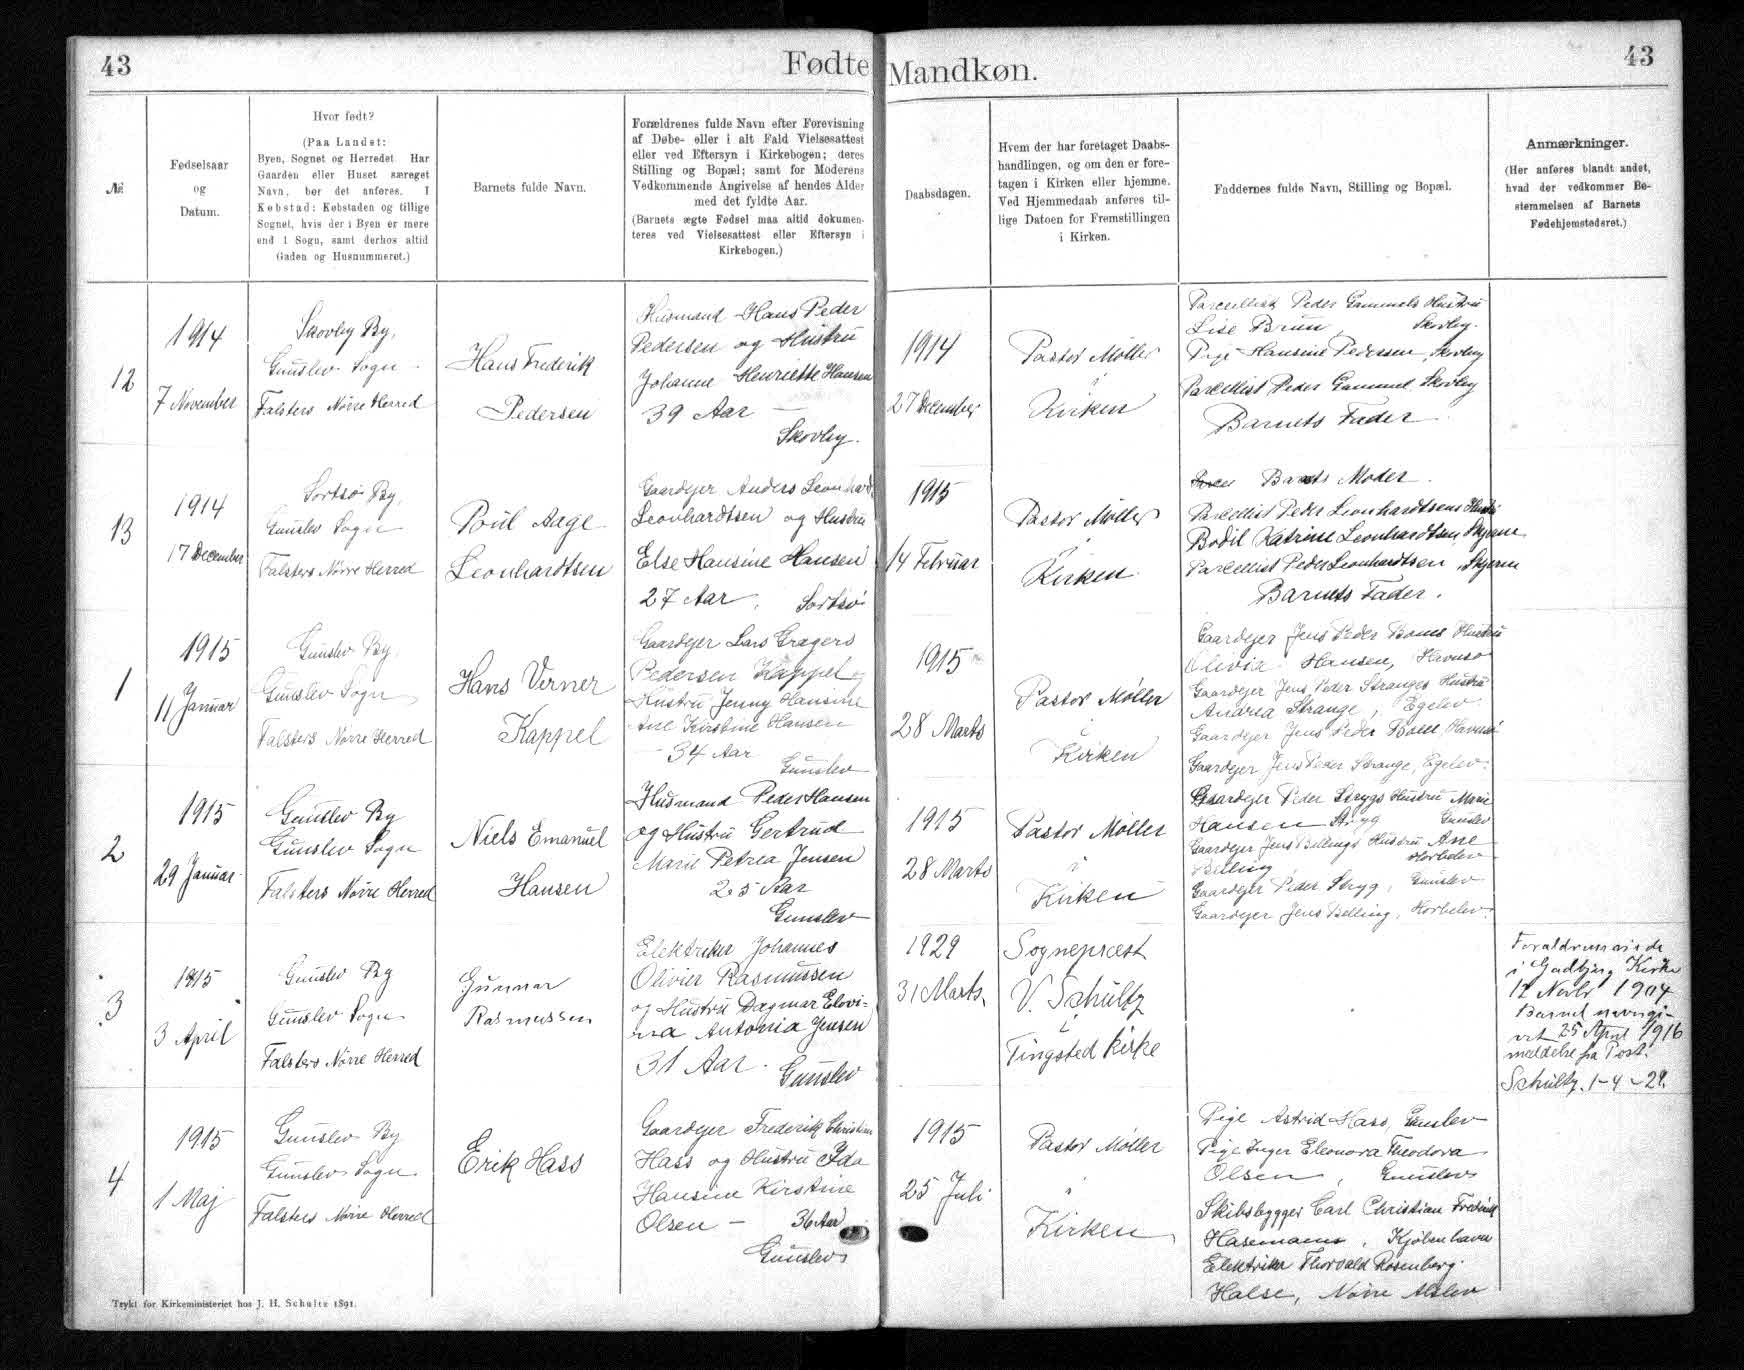 43
Fødte
Mandkøn.
43
№
Fødselsaar
og
Datum.
Hvor født?
(Paa Landet:
Byen, Sognet og Herredet. Har
Gaarden eller Huset særeget
Navn, bør det anføres. I
Købstad: Købstaden og tillige
Sognet, hvis der i Byen er mere
end 1 Sogn, samt derhos altid
Gaden og Husnummeret.)
Barnets fulde Navn.
Forældrenes fulde Navn efter Forevisning
af Døbe- eller i alt Fald Vielsesattest
eller ved Eftersyn i Kirkebogen; deres
Stilling og Bopæl; samt for Moderens
Vedkommende Angivelse af hendes Alder
med det fyldte Aar.
(Barnets ægte Fødsel maa altid dokumen-
teres ved Vielsesattest eller Eftersyn i
Kirkebogen.)
Daabsdagen.
Hvem der har foretaget Daabs-
handlingen, og om den er fore-
tagen i Kirken eller hjemme.
Ved Hjemmedaab anføres til-
lige Datoen for Fremstillingen
i Kirken.
Faddernes fulde Navn, Stilling og Bopæl.
Anmærkninger.
(Her anføres blandt andet,
hvad der vedkommer Be-
stemmelsen af Barnets
Fødehjemstedsret.)
12
1914
7 November
Skovby By,
Gunslev Sogn
Falsters Nørre Herred
Hans Frederik
Pedersen
Husmand Hans Peder
Pedersen og Hustru
Johanne Henriette Hansen
39 Aar —
Skovby.
1914
27 December
Pastor Møller
i
Kirken
Parcellist Peder Gammels Hustru
Lise Bruun, Skovby.
Pige Hansine Pedersen, Skovby
Parcellist Peder Gammel Skovby
Barnets Fader
13
1914
17 December
Sortsø By,
Gunslev Sogn
Falsters Nørre Herred
Poul Aage
Leonhardtsen
Gaardejer Anders Leonhard
Leonhardtsen og Hustru
Else Hansine Hansen
27 Aar, Sortsø
1915
14 Februar
Pastor Møller
i
Kirken
Barnets Moder.
Parcellist Peder Leonhardtsens Hustru
Bodil Katrine Leonhardtsen,
Parcellist Peder Leonhardtsen,
Barnets Fader.
1
1915
11 Januar
Gunslev By,
Gunslev Sogn
Falsters Nørre Herred
Hans Verner
Kappel
Gaardejer Lars Gregers
Pedersen Kappel og
Hustru Jenny Hansine
Ane Kirstine Hansen
— 34 Aar
Gunslev
1915
28 Marts
Pastor Møller
i
Kirken
Gaardejer Jens Peder Bomes Hustru
Olivia Hansen, Havnsø
Gaardejer Jens Peder Stranges Hustru
Andrea Strange, Egelev.
Gaardejer Jens Peder Havnsø
Gaardejer Jens Peder Strange, Egelev.
2
1915
29 Januar
Gunslev By
Gunslev Sogn
Falsters Nørre Herred
Niels Emanuel
Hansen
Husmand Peder Hansen
og Hustru Gertrud
Marie Petrea Jensen
25 Aar
Gunslev
1915
28 Marts
Pastor Møller
i
Kirken
Gaardejer Peder Strygs Hustru Marie
Hansen Stryg Gunslev
Gaardejer Jens Bellings Hustru Ane
Belling Horbelev
Gaardejer Peder Stryg, Gunslev
Gaardejer Jens Belling, Horbelev.
3
1915
3 April
Gunslev By
Gunslev Sogn
Falsters Nørre Herred
Gunnar
Rasmussen
Elektriker Johannes
Olivier Rasmussen
og Hustru Dagmar Elovi-
na Antonia Jensen
31 Aar.
Gunslev
1929
31 Marts.
Sognepræst
V. Schultz
i
Tingsted kirke
Forældrene viede
i Gadbjerg Kirke
17 Novbr 1904
Barnet navngi-
vet 25 April 1916
meddelse fra Past.
Schultz. 1-4-29.
4
1915
1 Maj
Gunslev By
Gunslev Sogn
Falsters Nørre Herred
Erik Hass
Gaardejer Frederik Christian
Hass og Hustru Ida
Hansine Kirstine
Olsen — 36 Aar
Gunslev
1915
25 Juli
Pastor Møller
i
Kirken
Pige Astrid Hass, Gunslev
Pige Inger Eleonora Theodora
Olsen, Gunslev
Skibsbygger Carl Christian Frederik
Hasemann, Kjøbenhavn
Elektriker Thorvald Rosenberg
Halse, Nørre Alslev
Trykt for Kirkeministeriet hos J. H. Schultz 1891.